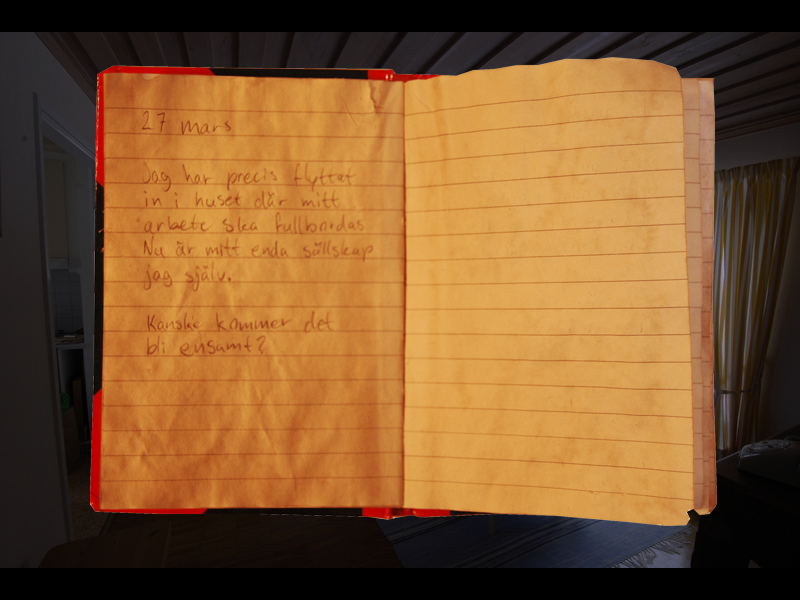 27 mars
Jag har precis flyttat
in i huset där mitt
arbete ska fullbordas
Nu är mitt enda sällskap
jag själv.
Kanske kommer det
bli ensamt?